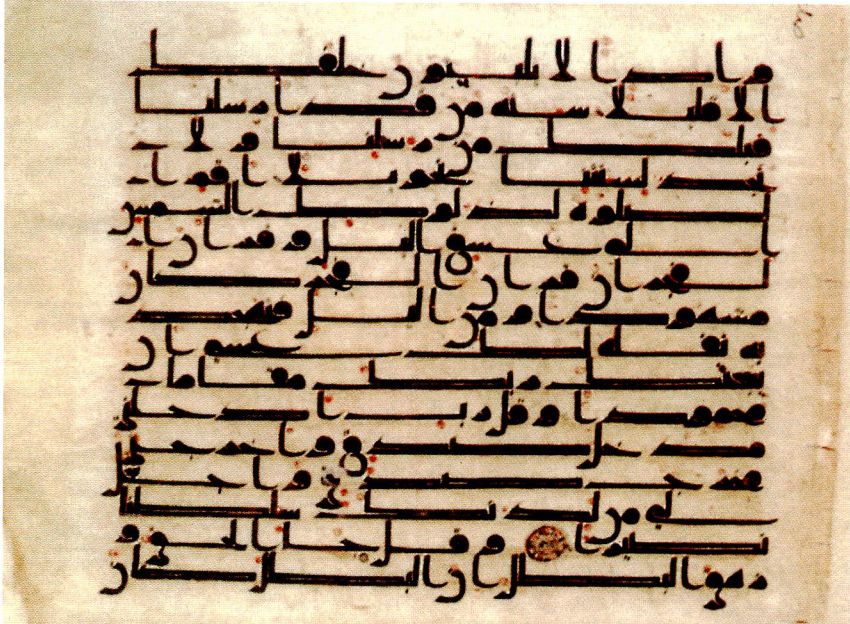 واذا لا يلبثون خلفك ا
لا قليلا سنه من قد ارسلنا
قبلك من رسلنا ولا
تجد لسنتنا تحويلا اقم ا
لصلوه لدلوك الشمس
الى غسق اليل وقران ا
لفجر ان قران الفجر كان
مشهودا ومن اليل فتهجد
به نفله لك عسى ان
يبعثك ربك مقاما
محمودا وقل رب ادخلني
مدخل صدق واخرجني
مخرج صدق واجعل
لي من لدنك سلطنا
نصيرا وقل جا الحق و
زهق البطل ان البطل كان